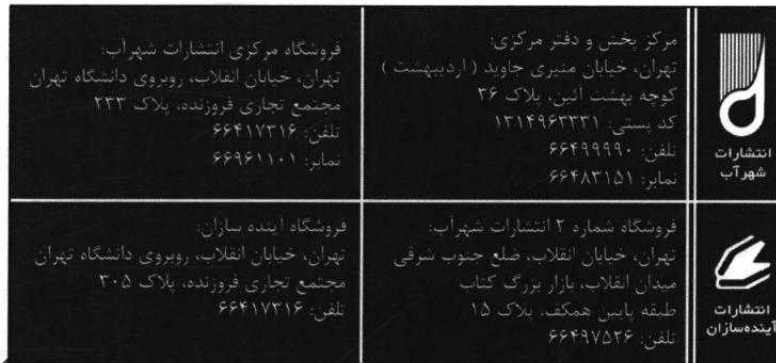 انتشارات
شهرآب
مرکز پخش و دفتر مرکزی:
تهران، خیابان منیری جاوید ( اردیبهشت )
کوچه بهشت آئین، پلاک ۳۶
کد پستی: ۱۳۱۴۹۶۳۳۳۱
تلفن: ۶۶۴۹۹۹۹۰
نمابر: ۶۶۴۸۳۱۵۱
فروشگاه مرکزی انتشارات شهرآب:
تهران، خیابان انقلاب، روبروی دانشگاه تهران
مجتمع تجاری فروزنده، پلاک ۲۳۳
تلفن: ۶۶۴۱۷۳۱۶
نمابر: ۶۶۹۶۱۱۰۱
انتشارات
آینده‌سازان
فروشگاه شماره ۲ انتشارات شهرآب:
تهران، خیابان انقلاب، ضلع جنوب شرقی
میدان انقلاب، بازار بزرگ کتاب
طبقه پایین همکف، پلاک ۱۵
تلفن: ۶۶۴۹۷۵۲۶
فروشگاه آینده سازان:
تهران، خیابان انقلاب، روبروی دانشگاه تهران
مجتمع تجاری فروزنده، پلاک ۳۰۵
تلفن: ۶۶۴۱۷۳۱۶